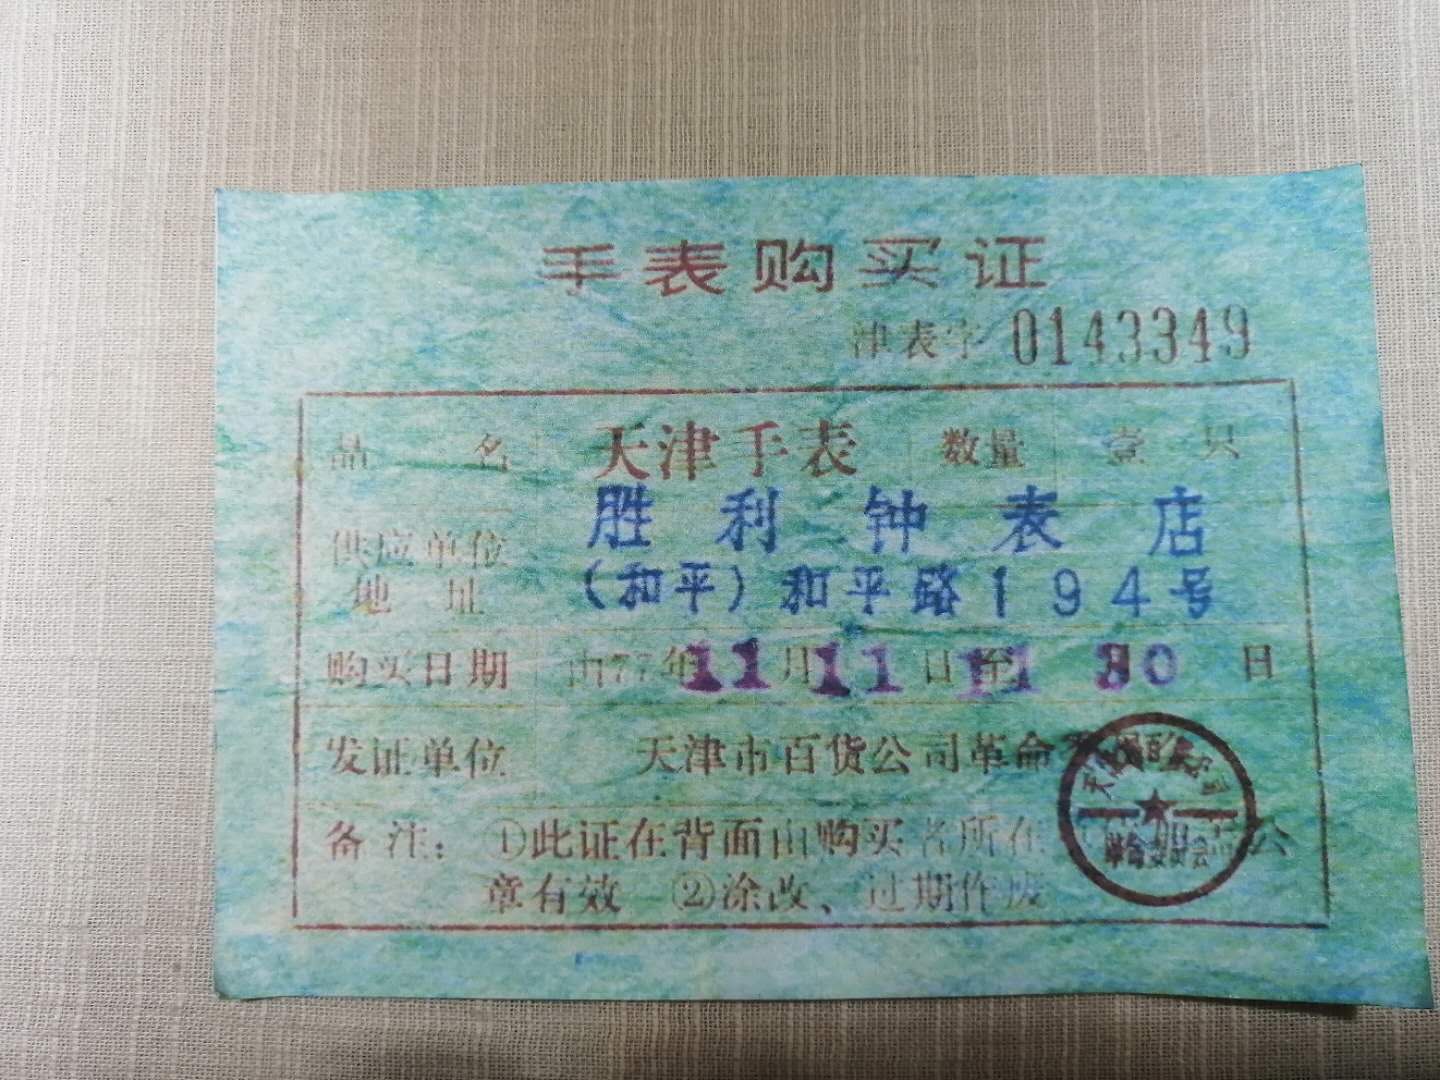 手表购买证
津表字 0143349
品名 天津手表 数量 壹只
供应单位 胜利钟表店
地址 (和平)和平路194号
购买日期 由77年11月11日至11月30日
发证单位 天津市百货公司革命
备注：①此证在背面由购买者所在 公
章有效 ②涂改、过期作废
天津市百货公司
革命委员会